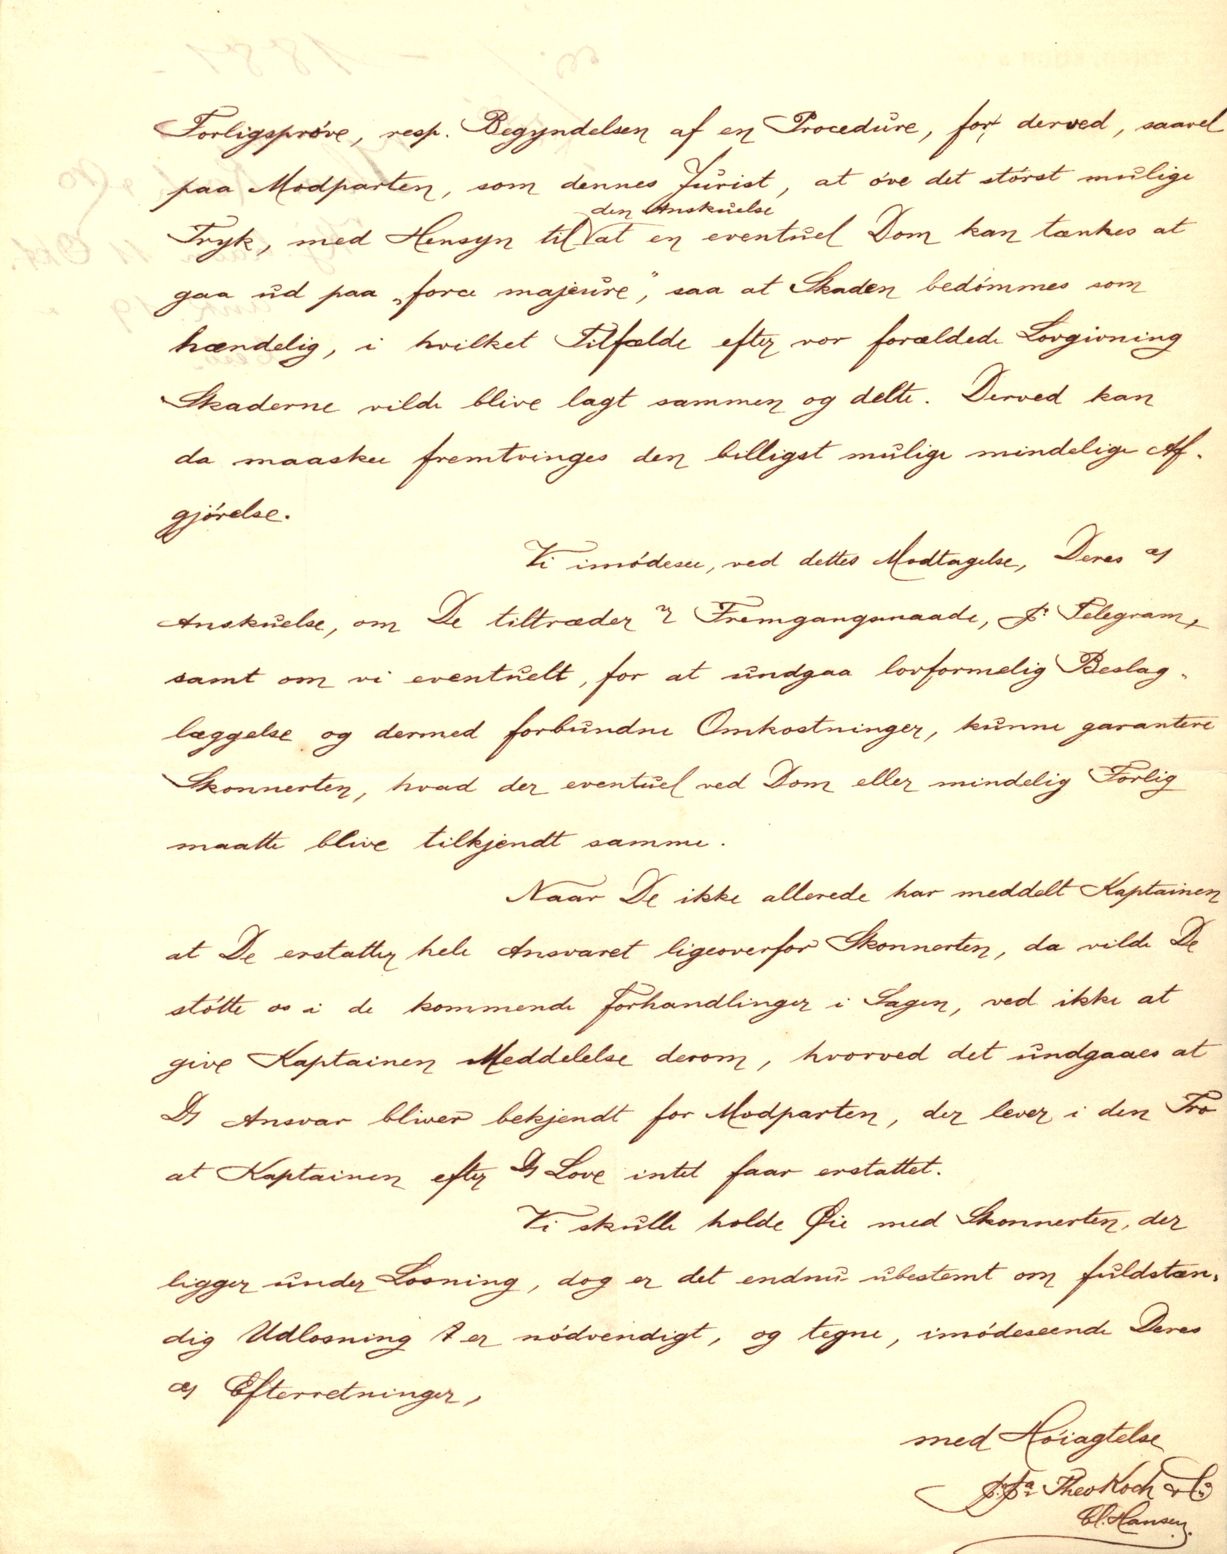 Forligsprøve, resp. Begyndelsen af en Procedure, for derved, saavel
paa Modparten, som dennes Jurist, at øve det størst mulige
den Anskuelse
Tryk, med Hensyn til at en eventuel Dom kan tænkes at
gaa ud paa „force majeure", saa at Skaden bedømmes som
hændelig, i hvilket Tilfælde efter vor forældede Lovgivning
Skaderne vilde blive lagt sammen og delte. Derved kan
da maaskee fremtvinges den billigst mulige mindelige Af-
gjørelse.
Vi imødesee, ved dettes Modtagelse, Deres
Anskuelse, om De tiltræder Fremgangsmaade, pr Telegram,
samt om vi eventuelt, for at undgaa lovformelig Beslag-
læggelse og dermed forbundne Omkostninger, kunne garantere
Skonnerten, hvad der eventuel ved Dom eller mindelig Forlig
maatte blive tilkjendt samme.
Naar De ikke allerede har meddelt Kaptainen
at De erstatter hele Ansvaret ligeoverfor Skonnerten, da vilde De
støtte os i de kommende Forhandlinger i Sagen, ved ikke at
give Kaptainen Meddelelse derom, hvorved det undgaaes at
Ds Ansvar bliver bekjendt for Modparten, der lever i den Tro
at Kaptainen efter Ds Love intet faar erstattet.
Vi skulle holde Øie med Skonnerten, der
ligger under Losning, dog er det endnu ubestemt om fuldstæn-
dig Udlosning er nødvendigt, og tegne, imødeseende Deres
Efterretninger,
med Høiagtelse
p.pa Theo Koch & Co
Cl. Hansen.